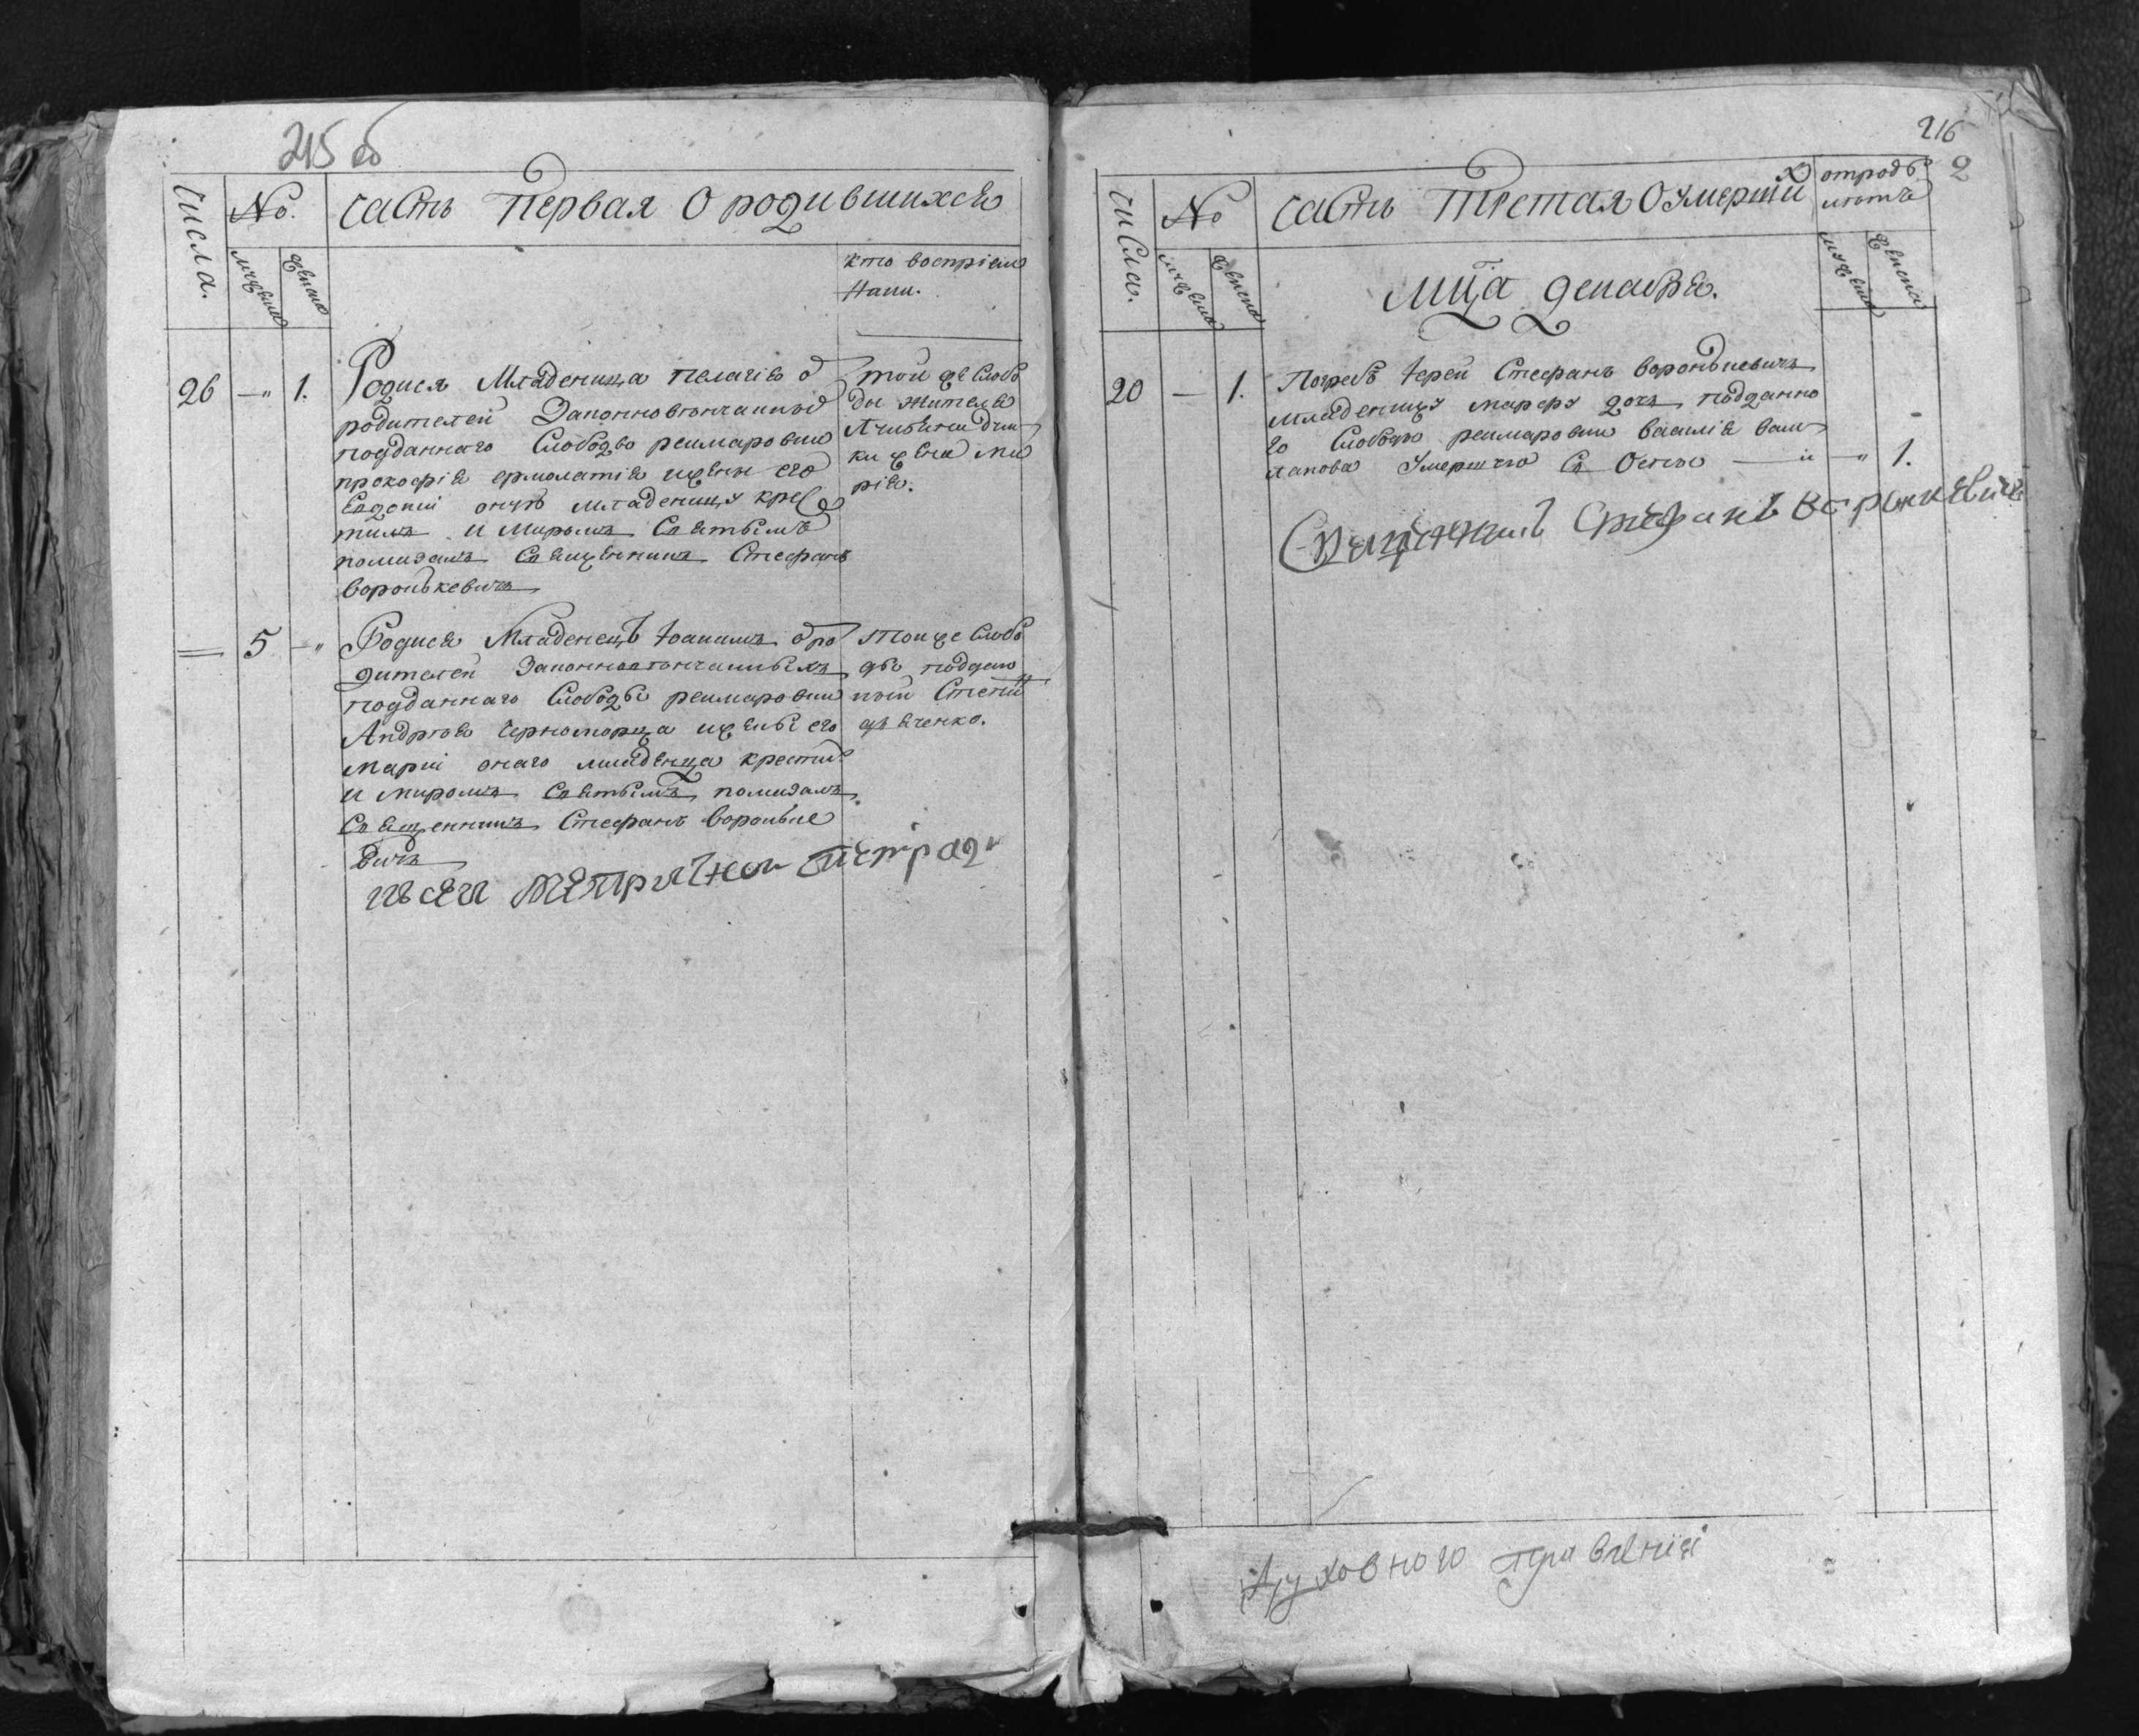 215 об
числа.
№.
мужеска
женска
часть Первая О родившихся
кто воспріем
Никъ.
26 —„ 1.
Родися Младеница пелагія о
родителей Законновѣнчанныхъ
подданнаго Слободы реймаровки
прокофія ермолатія ижены его
Евдокіи оную младеницу крес
тилъ и Миромъ Святымъ
помазалъ Священникъ Стефанъ
воронькевичъ
той же Слобо
ды жителя
жена Ма
рія.
= 5 —„
Родися Младенецъ Іоакимъ о ро
дителей Законновѣнчанныхъ
подданнаго Слободы реймаровки
Андрея Черноморца ижены его
Маріи онаго младенца крестилъ
и миромъ Святымъ помазалъ
Священникъ Стефанъ воронькe
вичъ
той же Слобо
ды поддан
ный
216
2
числа.
№
мужеска
женска
часть Третая О Умершихъ
отродъ
лѣтъ
мужеска
женска
мца декабря.
20 — 1.
Погребъ Іерей Стефанъ воронькевичъ
младеницу марфу дочь подданно
го Слободы реймаровки василія
Умершую Съ Оспы — „ 1.
Священникъ Стефанъ Воронкевичъ
духовного правленія